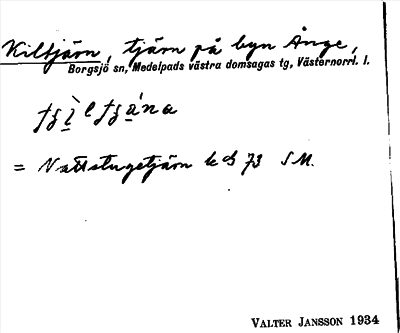 Kiltjärn, tjärn på byn Ånge,
Borgsjö sn, Medelpads västra domsagas tg, Västernorrl. l.
= Nattstugetjärn
73 SM.
VALTER JANSSON 1934